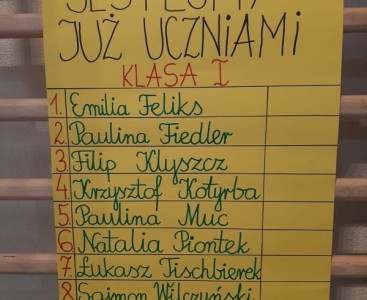 JESTEŚMY
JUŻ UCZNIAMI
KLASA I
1. Emilia Feliks
2. Paulina Fiedler
3. Filip Klyszcz
4. Krzysztof Kotyrba
5. Paulina Muc
6. Natalia Piontek
7. Łukasz Tischbierek
8. Sajmon Wilczyński